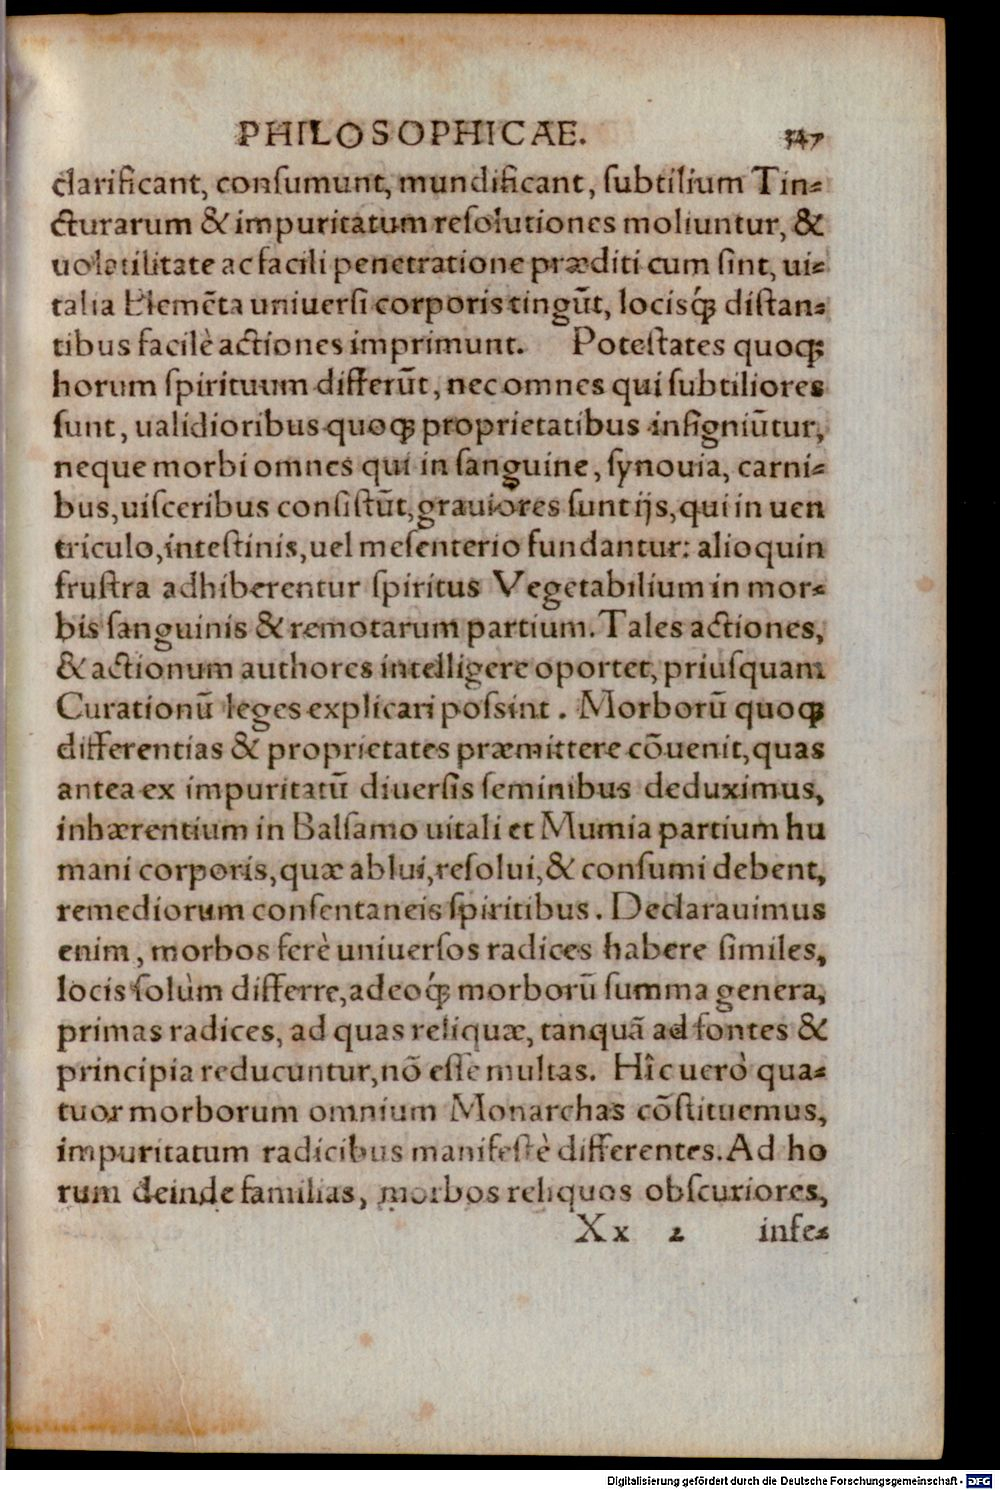 PHILOSOPHICAE. 347
clarificant, conſumunt, mundificant, ſubtilium Tin-
cturarum & impuritatum reſolutiones moliuntur, &
uolatilitate ac facili penetratione præditi cum ſint, ui-
talia Elemẽta uniuerſi corporis tingũt, locisq́; diſtan-
tibus facilè actiones imprimunt. Poteſtates quoq;
horum ſpirituum differũt, nec omnes qui ſubtiliores
ſunt, ualidioribus quoq; proprietatibus inſigniũtur,
neque morbi omnes qui in ſanguine, ſynouia, carni-
bus, uiſceribus conſiſtũt, grauiores ſunt ijs, qui in uen
triculo, inteſtinis, uel meſenterio fundantur: alioquin
fruſtra adhiberentur ſpiritus Vegetabilium in mor-
bis ſanguinis & remotarum partium. Tales actiones,
& actionum authores intelligere oportet, priuſquam
Curationũ leges explicari poſsint. Morborũ quoq;
differentias & proprietates præmittere cõuenit, quas
antea ex impuritatũ diuerſis ſeminibus deduximus,
inhærentium in Balſamo uitali et Mumia partium hu
mani corporis, quæ ablui, reſolui, & conſumi debent,
remediorum conſentaneis ſpiritibus. Declarauimus
enim, morbos ferè uniuerſos radices habere ſimiles,
locis ſolùm differre, adeoq́; morborũ ſumma genera,
primas radices, ad quas reliquæ, tanquã ad fontes &
principia reducuntur, nõ eſſe multas. Hîc uerò qua-
tuor morborum omnium Monarchas cõſtituemus,
impuritatum radicibus manifeſtè differentes. Ad ho
rum deinde familias, morbos reliquos obſcuriores,
Xx 2 infe-
Digitalisierung gefördert durch die Deutsche Forschungsgemeinschaft - DFG